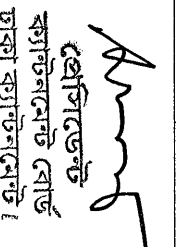 প্রেসিডেন্ট
ক্যান্টনমেন্ট বোর্ড
ঢাকা ক্যান্টনমেন্ট।